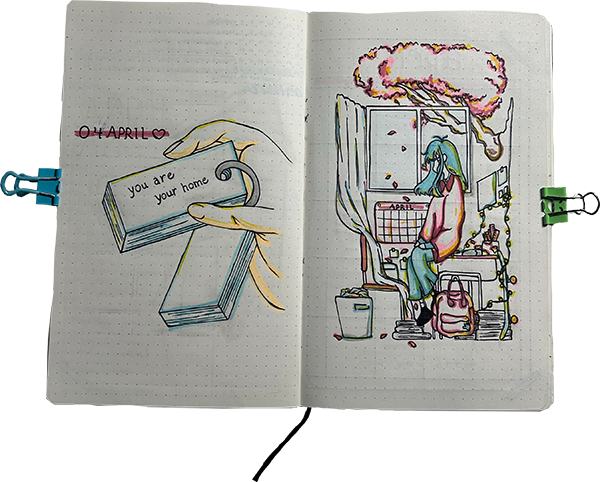 04 APRIL ♡
you are
your home
APRIL